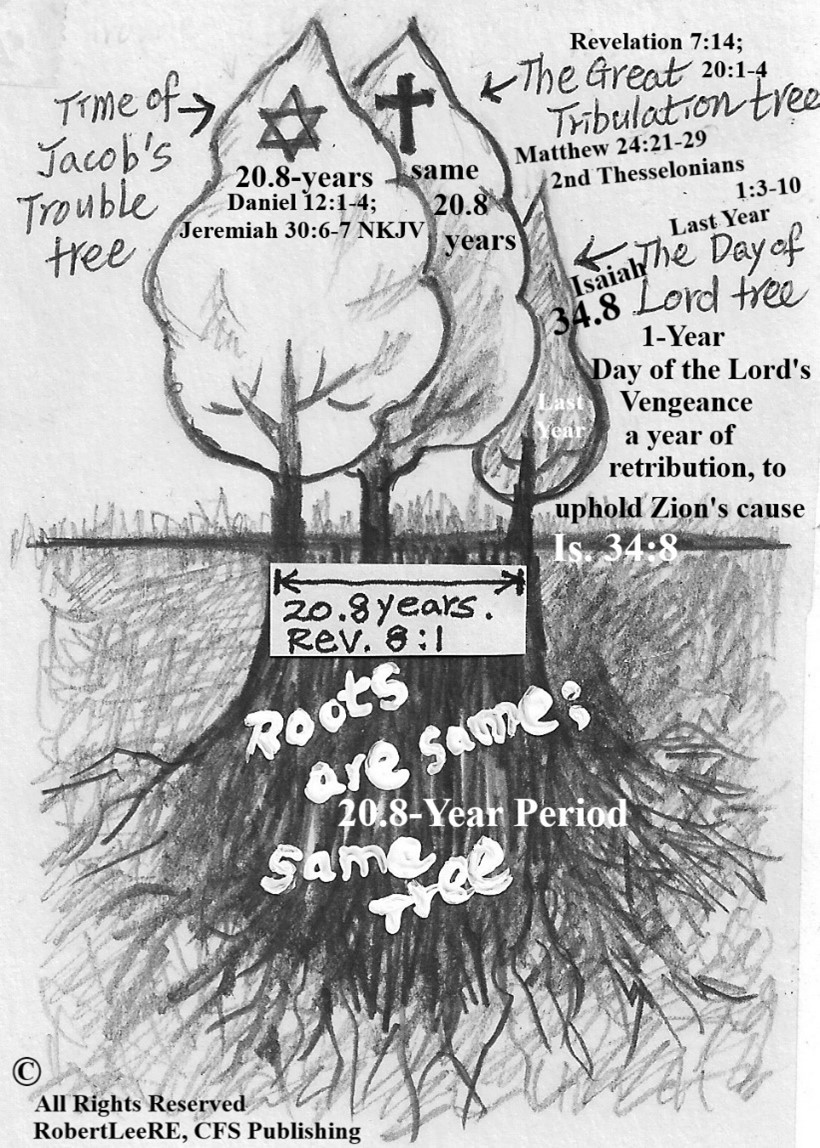 Time of
Jacob's
Trouble
tree
20.8-years
Daniel 12:1-4;
Jeremiah 30:6-7 NKJV
same
20.8
years
Revelation 7:14;
The Great 20:1-4
Tribulation tree
Matthew 24:21-29
2nd Thesselonians
1:3-10
Last Year
The Day of
Lord tree
Isaiah
34.8
1-Year
Day of the Lord's
Vengeance
a year of
retribution, to
uphold Zion's cause
Is. 34:8
Last
Year
20.8 years.
Rev. 8:1
Roots
are same;
20.8-Year Period
same
Tree
©
All Rights Reserved
RobertLeeRE, CFS Publishing